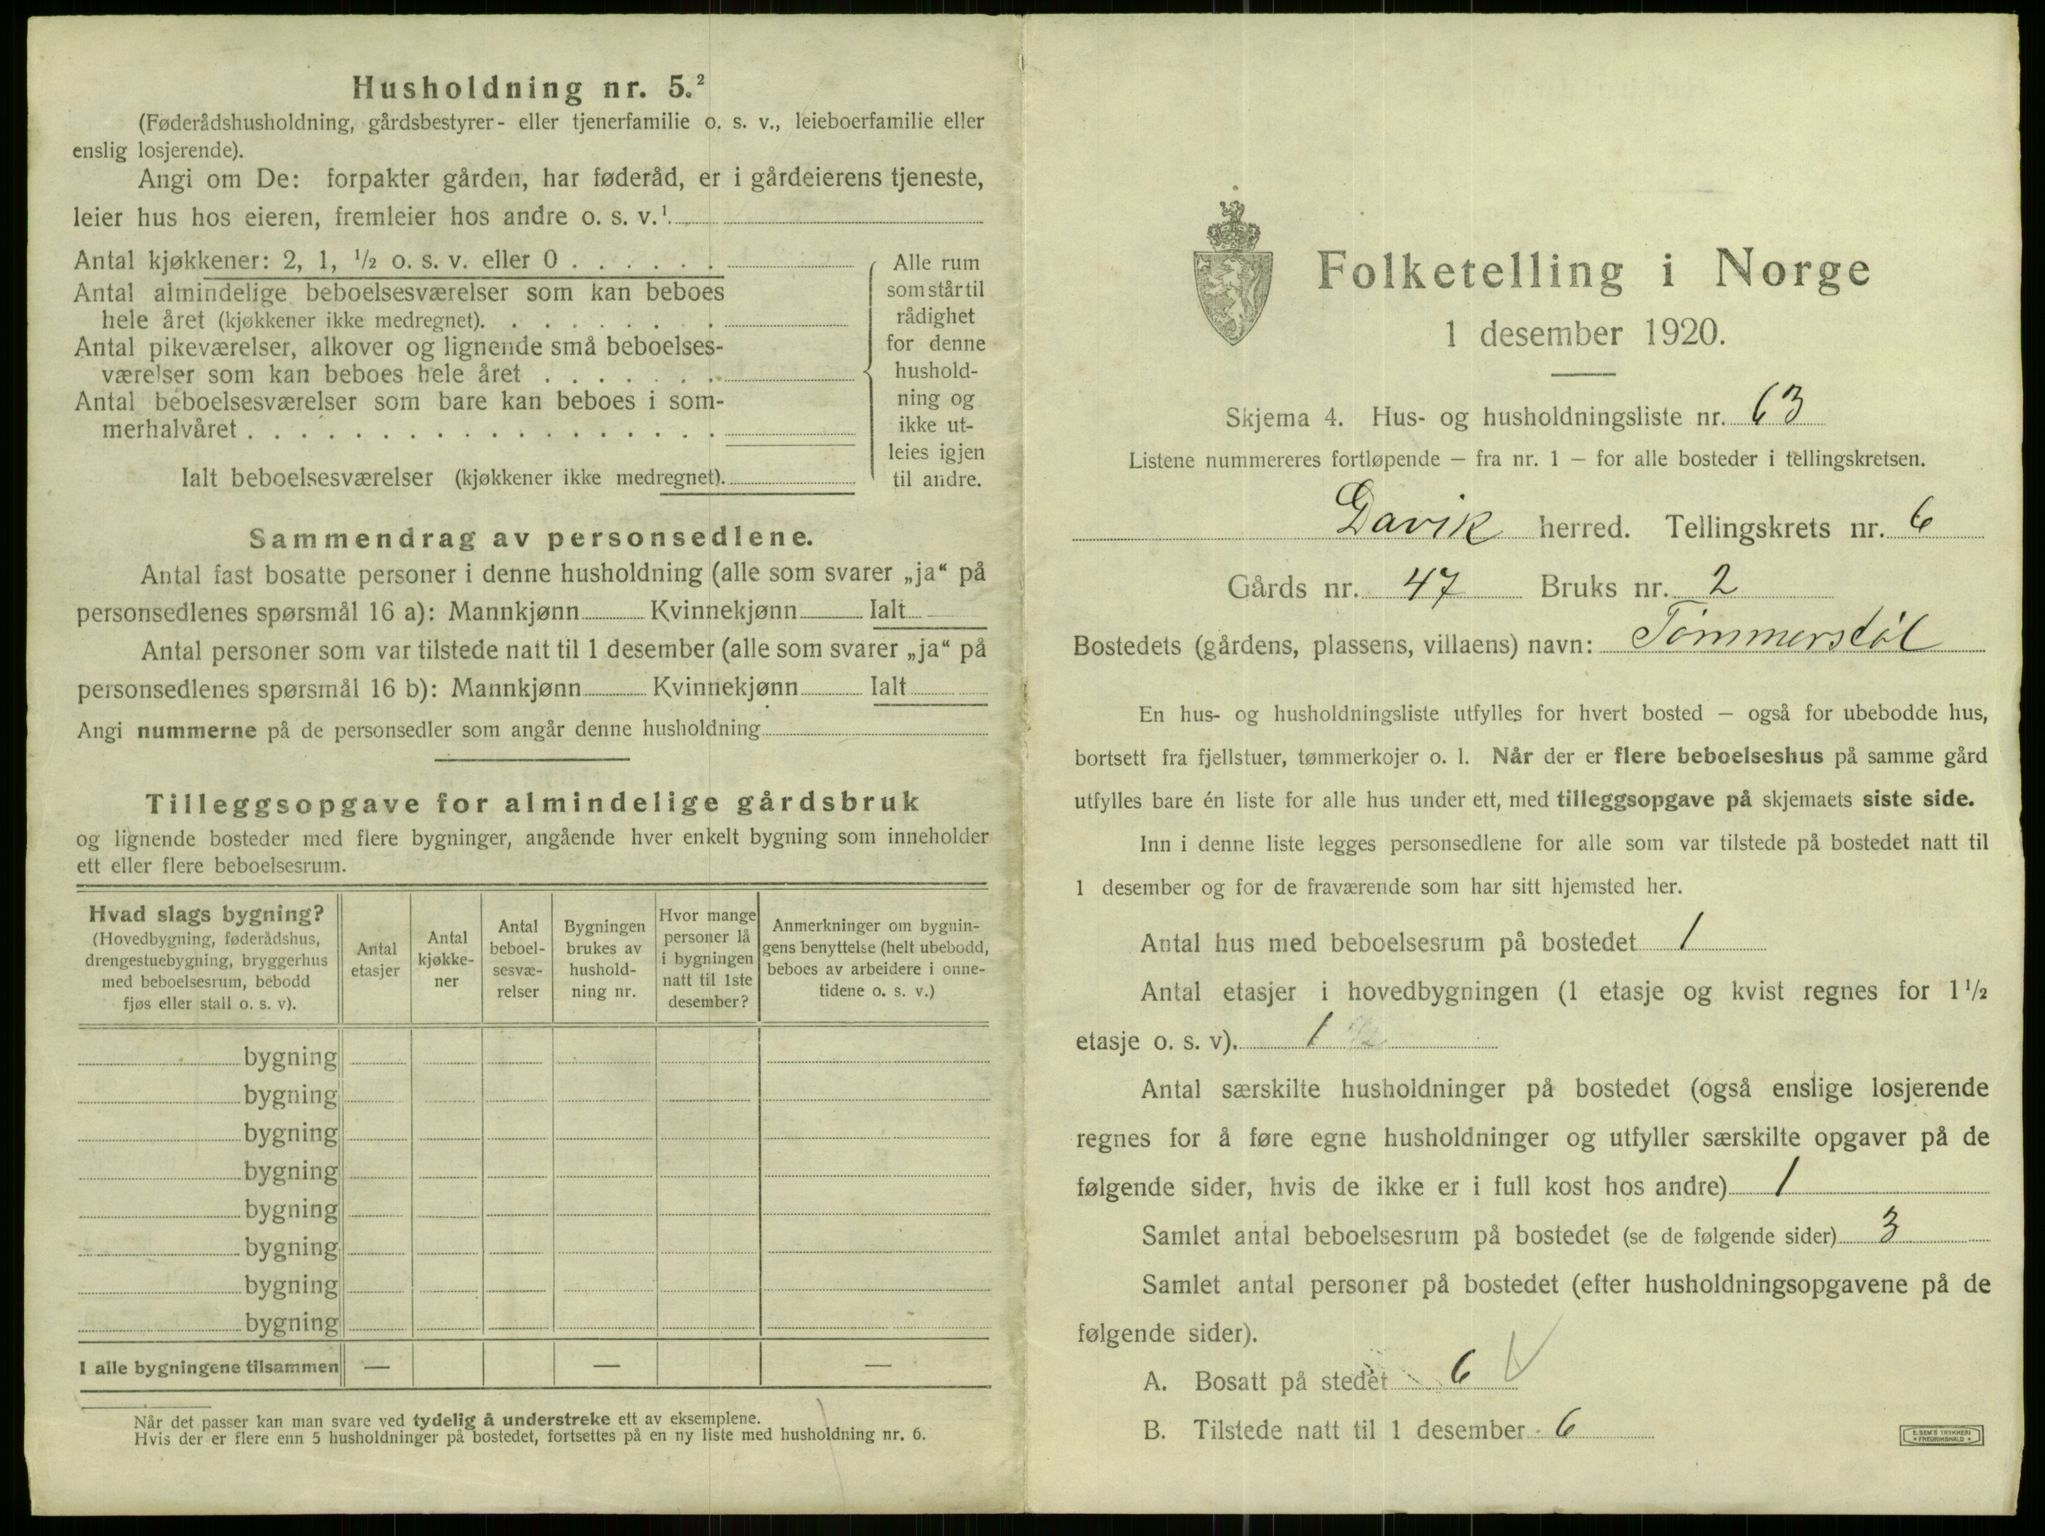 Husholdning nr. 5.²
(Føderådshusholdning, gårdsbestyrer- eller tjenerfamilie o. s. v., leieboerfamilie eller
enslig losjerende).
Angi om De: forpakter gården, har føderåd, er i gårdeierens tjeneste,
leier hus hos eieren, fremleier hos andre o. s. v.¹
Antal kjøkkener: 2, 1, ½ o. s. v. eller 0 . . . . . .
Antal almindelige beboelsesværelser som kan beboes
hele året (kjøkkener ikke medregnet). . . . . . . . .
Antal pikeværelser, alkover og lignende små beboelses-
værelser som kan beboes hele året . . . . . . .
Antal beboelsesværelser som bare kan beboes i som-
merhalvåret . . . . . . . . . . . . . . . . . .
Ialt beboelsesværelser (kjøkkener ikke medregnet).
Alle rum
som står til
rådighet
for denne
hushold-
ning og
ikke ut-
leies igjen
til andre.
Sammendrag av personsedlene.
Antal fast bosatte personer i denne husholdning (alle som svarer „ja“ på
personsedlenes spørsmål 16 a): Mannkjønn Kvinnekjønn Ialt
Antal personer som var tilstede natt til 1 desember (alle som svarer „ja“ på
personsedlenes spørsmål 16 b): Mannkjønn Kvinnekjønn Ialt
Angi nummerne på de personsedler som angår denne husholdning
Tilleggsopgave for almindelige gårdsbruk
og lignende bosteder med flere bygninger, angående hver enkelt bygning som inneholder
ett eller flere beboelsesrum.
Hvad slags bygning?
(Hovedbygning, føderådshus,
drengestuebygning, bryggerhus
med beboelsesrum, bebodd
fjøs eller stall o. s. v).
Antal
etasjer
Antal
kjøkke-
ner
Antal
beboel-
sesvæ-
relser
Bygningen
brukes av
hushold-
ning nr.
Hvor mange
personer lå
i bygningen
natt til 1ste
desember?
Anmerkninger om bygnin-
gens benyttelse (helt ubebodd,
beboes av arbeidere i onne-
tidene o. s. v.)
bygning
bygning
bygning
bygning
bygning
bygning
bygning
bygning
I alle bygningene tilsammen — — —
Når det passer kan man svare ved tydelig å understreke ett av eksemplene.
Hvis der er flere enn 5 husholdninger på bostedet, fortsettes på en ny liste med husholdning nr. 6.
Folketelling i Norge
1 desember 1920.
Skjema 4. Hus- og husholdningsliste nr. 63
Listene nummereres fortløpende – fra nr. 1 – for alle bosteder i tellingskretsen.
Davik herred. Tellingskrets nr. 6
Gårds nr. 47 Bruks nr. 2
Bostedets (gårdens, plassens, villaens) navn: Tømmerstøl
En hus- og husholdningsliste utfylles for hvert bosted – også for ubebodde hus,
bortsett fra fjellstuer, tømmerkojer o. l. Når der er flere beboelseshus på samme gård
utfylles bare én liste for alle hus under ett, med tilleggsopgave på skjemaets siste side.
Inn i denne liste legges personsedlene for alle som var tilstede på bostedet natt til
1 desember og for de fraværende som har sitt hjemsted her.
Antal hus med beboelsesrum på bostedet 1
Antal etasjer i hovedbygningen (1 etasje og kvist regnes for 1½
etasje o. s. v). 1 ½
Antal særskilte husholdninger på bostedet (også enslige losjerende
regnes for å føre egne husholdninger og utfyller særskilte opgaver på de
følgende sider, hvis de ikke er i full kost hos andre) 1
Samlet antal beboelsesrum på bostedet (se de følgende sider) 3
Samlet antal personer på bostedet (efter husholdningsopgavene på de
følgende sider).
A. Bosatt på stedet 6
B. Tilstede natt til 1 desember 6
E. SEM'S TRYKKERI
FREDRIKSHALD